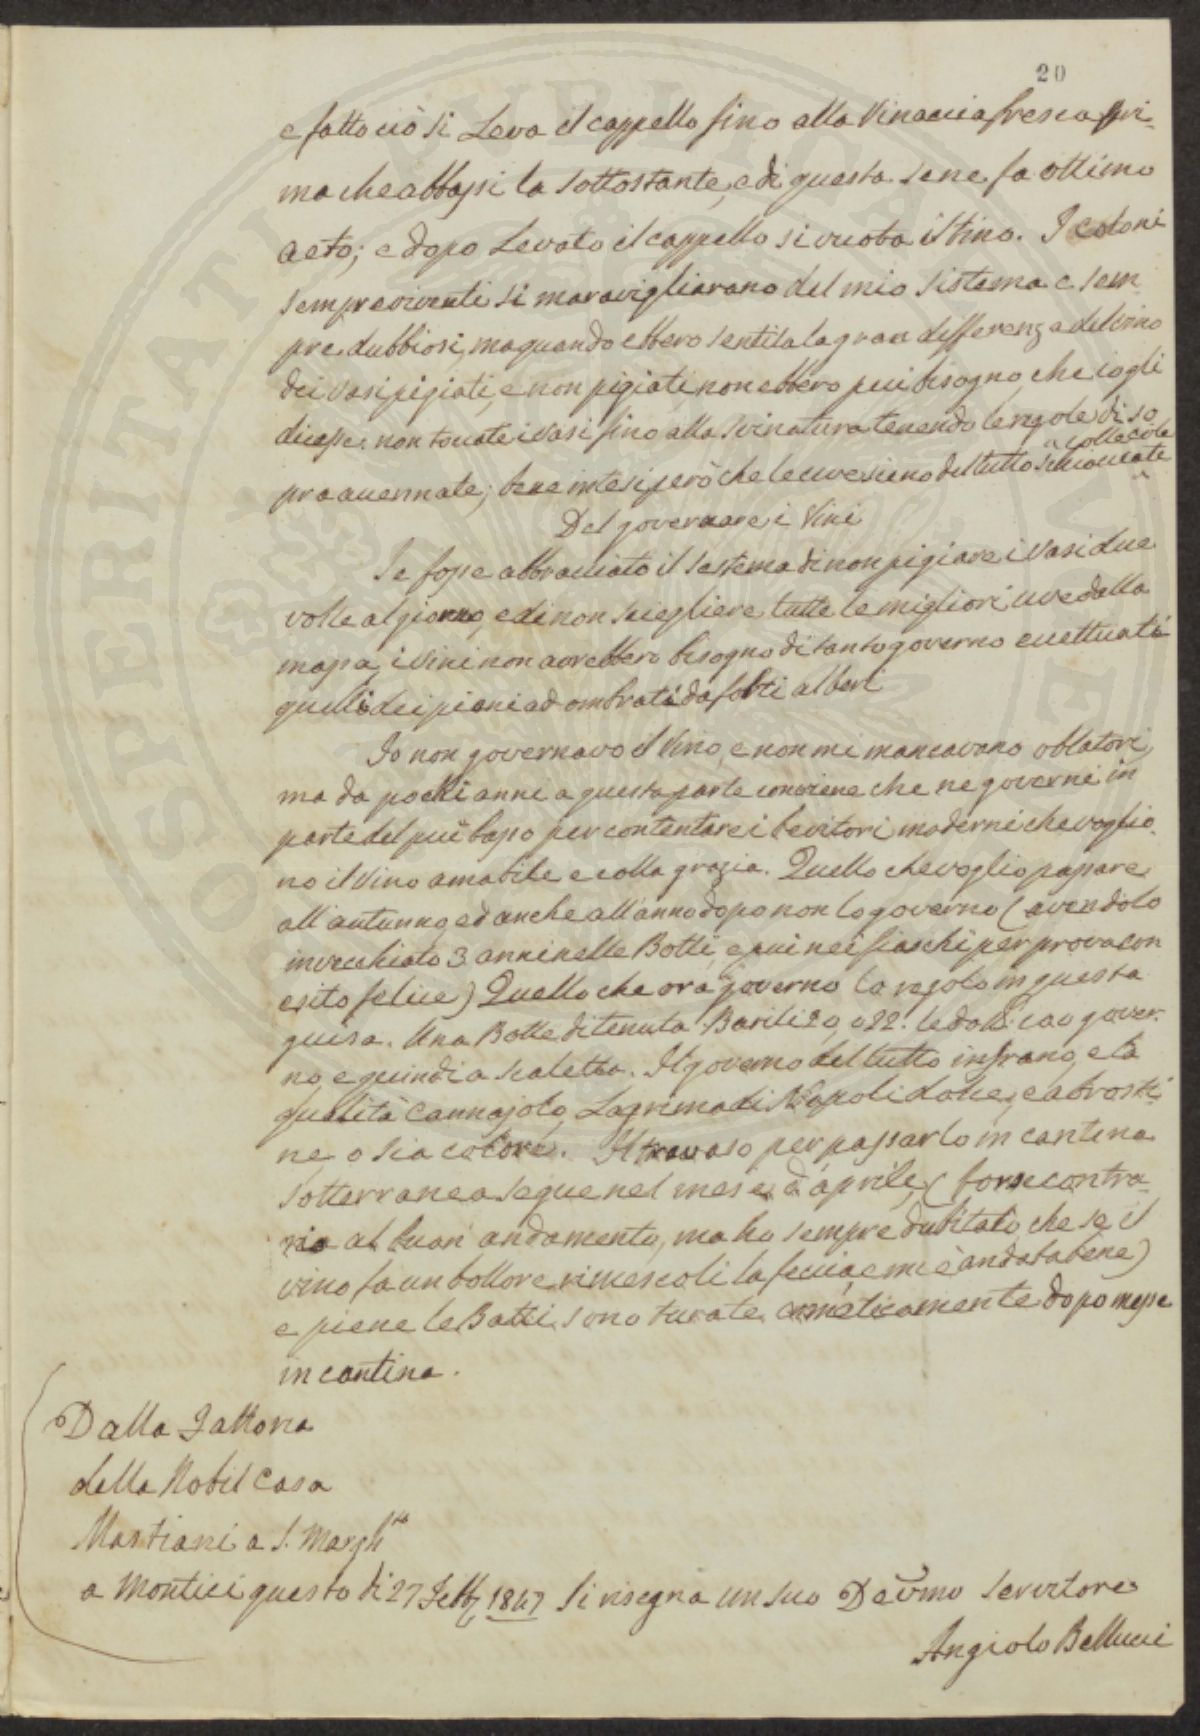 20
e fatto ciò si Leva il cappello fino alla Vinaccia fresca pri-
ma che abbassi la sottostante, e di questa se ne fa ottimo
aceto; e dopo Levato il cappello si vuota il tino. I coloni
sempreviventi si maravigliarano del mio sistema e sem-
pre dubbiosi, ma quando ebbero sentita la gran differenza del vino
dei vasi pigiati, e non pigiati non ebbero più bisogno che io gli
dicesse: non toccate i vasi fino alla svinatura tenendo le regole di so
pra accennate; bene intesi però che le uve sieno del tutto schiacciate
colle cole
Del governare i Vini
Se fosse abbracciato il sistema di non pigiare i vasi due
volte al giorno, e di non sciegliere tutte le migliori uve dalla
massa, i Vini non avrebbero bisogno di tanto governo eccettuati
quelli dei piani ad ombrati da folti alberi
Io non governavo il Vino, e non mi mancavano oblatori,
ma da pochi anni a questa parte conviene che ne governi in
parte del più basso per contentare i bevitori moderni che voglio-
no il Vino amabile e colla grazia. Quello che voglio passare
all'autunno ed anche all'anno dopo non lo governo (avendolo
invecchiato 3 anni nelle Botti, e più nei fiaschi per prova con
esito felice) Quello che ora governo lo regolo in questa
guisa. Una Botte di tenuta Barili 20, o 22. le do
no, e quindi a scaletta. Il governo del tutto infrano, e la
qualità Cannajolo, Lagrima di Napoli dolce, e abrosti-
ne o sia colore. Il travaso per passarlo in cantina
sotterranea segue nel mese d'aprile, (forse contra-
rio al buon andamento, ma ho sempre dubitato che se il
vino fa un bollore rimescoli la feccia, e mi è andata bene)
e piene le Botti sono turate ermeticamente dopo messe
in cantina.
Dalla Fattoria
della Nobil Casa
Mastiani a S. Margh.ta
a Montici questo dì 27 Sett. 1847 Si risegna un suo Devmo servitore
Angiolo Bellucci